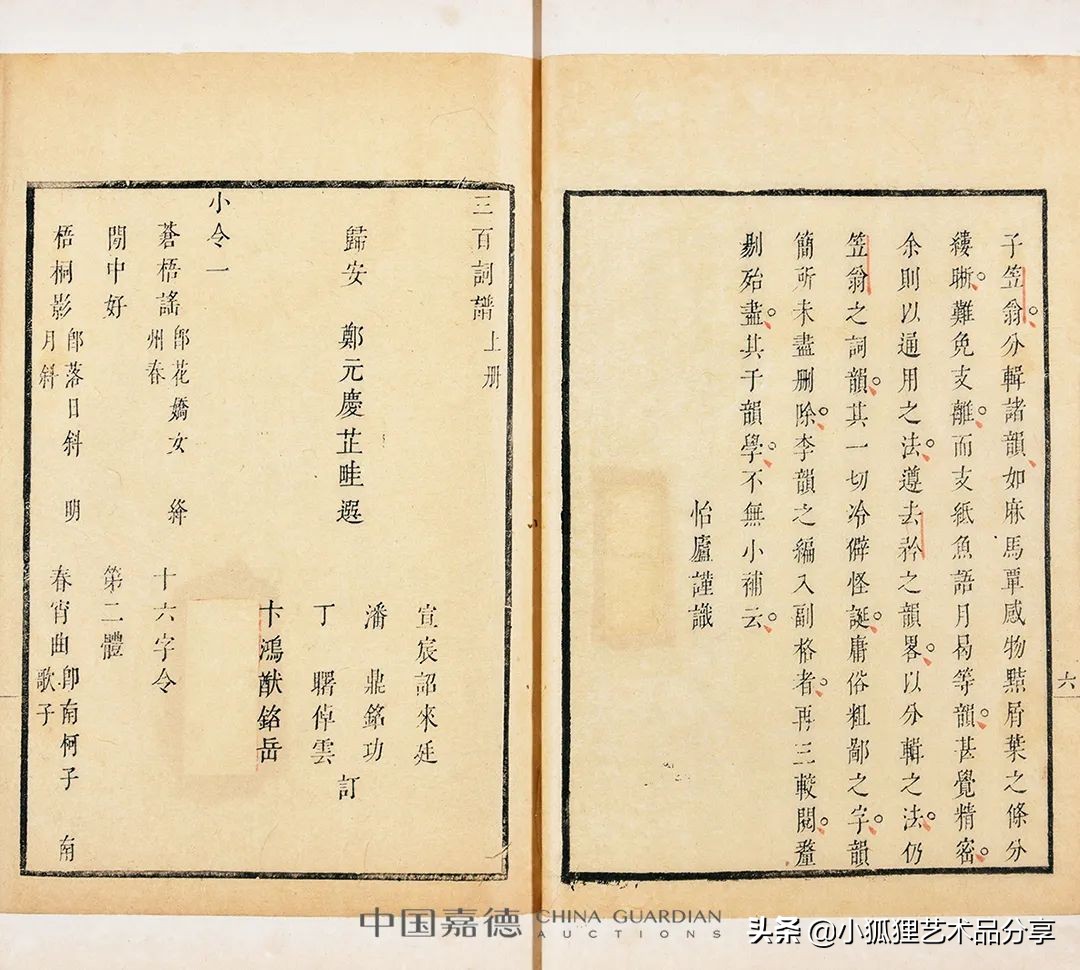 子笠翁分輯諸韻如麻馬覃感物點屑葉之條分
縷晰難免支離而支紙魚語月曷等韻甚覺精密
余則以通用之法遵去矜之韻畧以分輯之法仍
笠翁之詞韻其一切冷僻怪誕庸俗粗鄙之字韻
簡所未盡刪除李韻之編入副格者再三較閱釐
剔殆盡其于韻學不無小補云
怡廬謹識
六
三百詞譜上册
歸安 鄭元慶芷畦選
宣宸詔來廷
潘 鼎銘功
丁 曙倬雲
卞鴻猷銘岳
訂
小令一
蒼梧謠 即花嬌女 絳州春 十六字令
閒中好 第二體
梧桐影 即落日斜 明月斜 春宵曲 即南柯子 南歌子
中国嘉德 CHINA GUARDIAN AUCTIONS
头条 @小狐狸艺术品分享